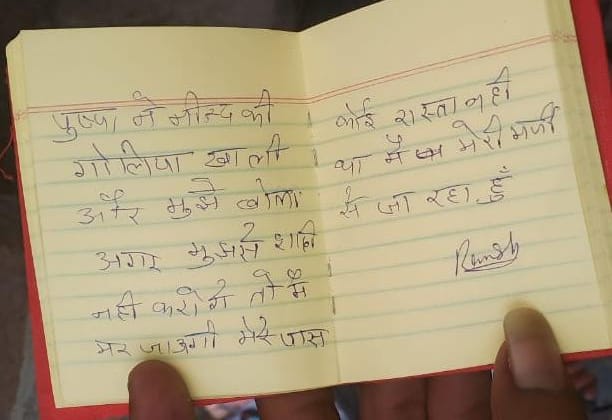 पुष्पा ने नीन्द की
गोलिया खा ली
और मुझे बोला
अगर मुझसे शादी
नही करोगे तो मैं
मर जाऊगी मेरे पास
कोई रास्ता नही
था मैं मेरी मर्जी
से जा रहा हुँ